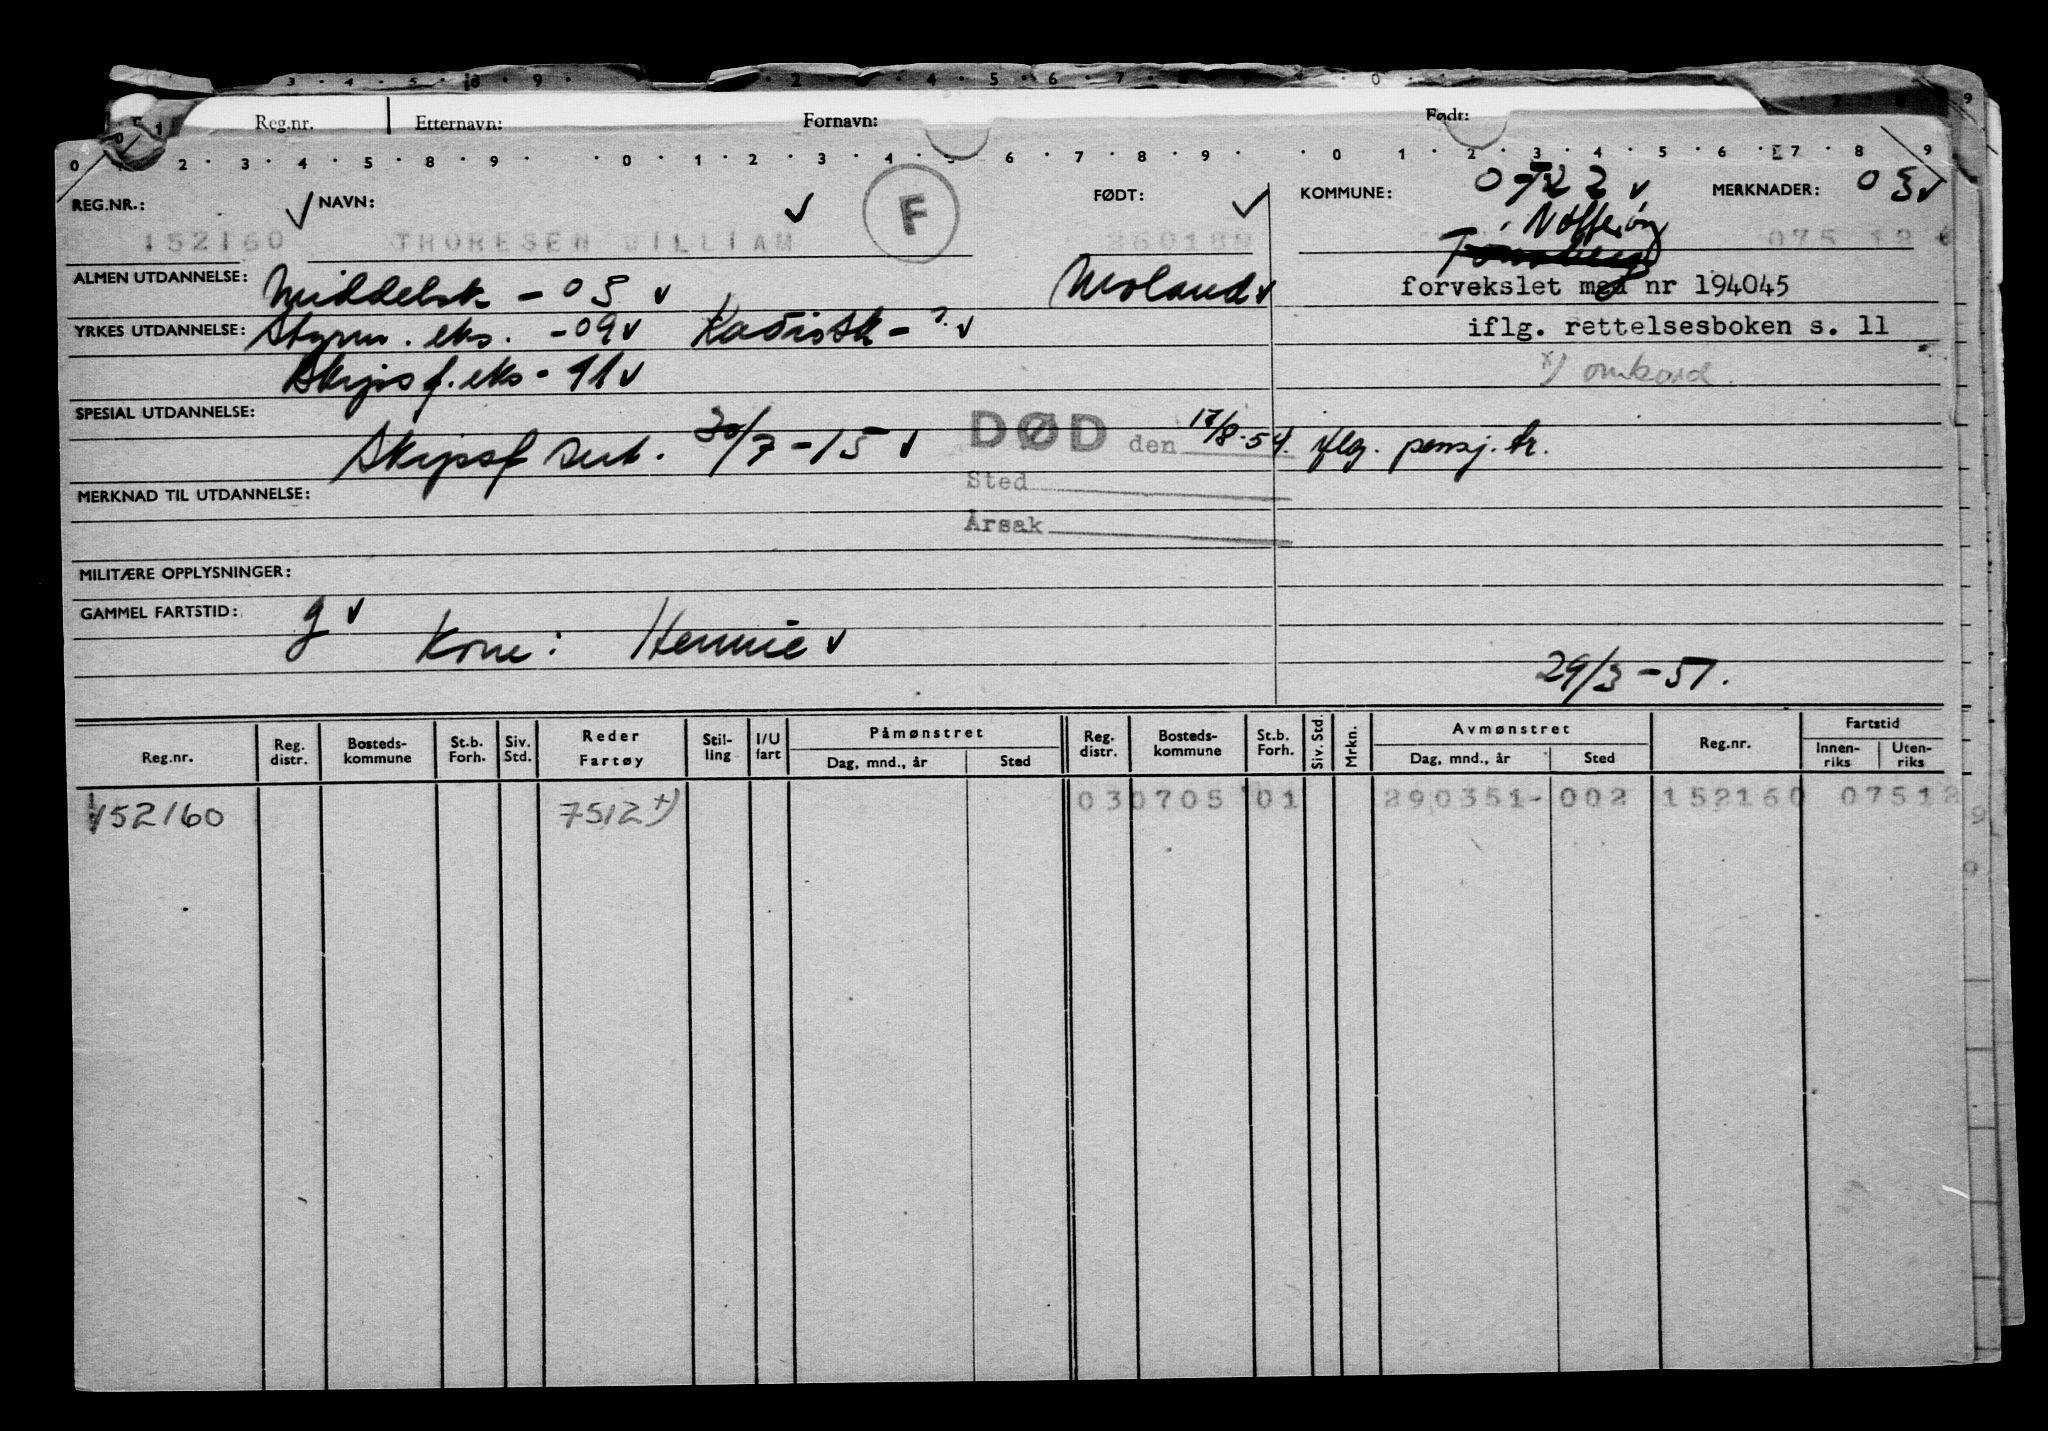 3 · 4 · 5 · 8 · 9 · 2 · 4 · 5 · 6 · 7 · 8 · 9 · 0
Reg.nr. Etternavn: Fornavn: Født:
0 1 2 · 3 · 4 · 5 · 8 · 9 · 0 · 1 · 2 · 3 · 4 · 5 6 · 7 · 8 · 9 · 0 1 · 2 · 3 · 4 · 5 6 · 7 · 8 9
REG.NR.: NAVN: F FØDT: KOMMUNE: 0722 MERKNADER: 03
Nøtterøy
152160 THORESEN WILLIAM 260189 075 12
ALMEN UTDANNELSE: Middelsk - 05 Moland Tønsberg
forvekslet med nr 194045
YRKES UTDANNELSE: Styrm. eks. - 09 Radiotk - ? iflg. rettelsesboken s. 11
Skipsf. eks - 11 x) omkord.
SPESIAL UTDANNELSE: Skipsf sert. 30/7 - 15 DØD den 17/8-54. iflg. pensj. tr.
Sted
MERKNAD TIL UTDANNELSE:
Årsak
MILITÆRE OPPLYSNINGER:
GAMMEL FARTSTID: g
Kone: Hennie
29/3 - 51.
Reg.nr. Reg. distr. Bosteds- kommune St.b. Forh. Siv. Std. Reder Fartøy Stil- ling I/U fart Påmønstret Dag, mnd., år Sted Reg. distr. Bosteds- kommune St.b. Forh. Siv. Std. Mrkn. Avmønstret Dag, mnd., år Sted Reg.nr. Fartstid Innen- riks Uten- riks
152160 7512 +) 03 0705 01 290351- 002 152160 07512